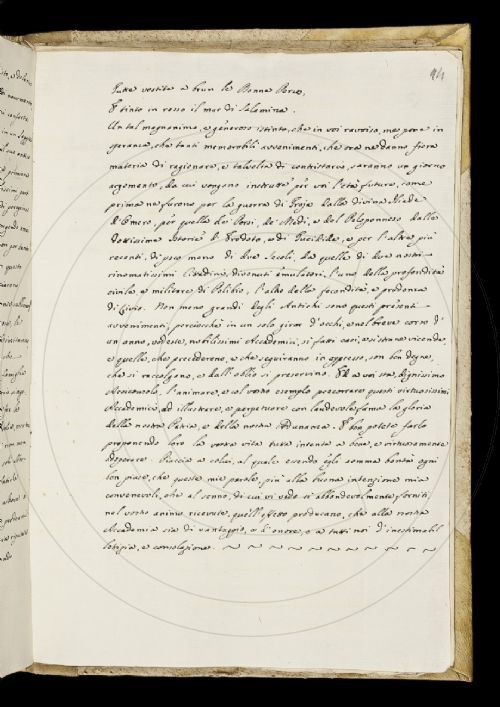 94
Tutte vestite a brun le Donne Perse,
E tinto in rosso il mar di Salamina.
Un tal magnanimo, e generoso istinto, che in voi ravviso, me pone in
isperanza, che tanti memorabili avvenimenti, che ora ne danno fiera
materia di ragionare, e talvolta di contristarci, saranno un giorno
argomento, da cui vengono instrutte per voi l'età future, come
prima ne furono per la guerra di Troja dalla divina Iliade
d'Omero, per quella de' Persi, de' Medi, e del Peloponneso dalle
dottissime Istorie d'Erodoto, e di Tucidide, e per l'altre più
recenti, di poco meno di due secoli, da quelle di due nostri
rinomatissimi Cittadini, divenuti emulatori, l'uno della profondità
civile, e militare di Polibio, l'altro della fecondità, e prudenza
di Livio. Non meno grandi degli Antichi sono questi presenti
avvenimenti, perciocchè in un solo girar d'occhi, e nel breve corso d'
un anno, vedeste, nobilissimi Accademici, sì fatti casi, e sì strane vicende,
e quelle, che precederono, e che seguiranno in appresso, son ben degne,
che si raccolgano, e dall'oblio si preservino. Ed a voi sta, dignissimo
Arciconsolo, l'animare, e al vostro esempio procurare questi virtuosissimi
Accademici, ad illustrare, e perpetuare con laudevole fama la gloria
della nostra Patria, e della nostra Adunanza. E ben potete farlo
proponendo loro la vostra vita tutta intenta a bene, e virtuosamente
adoperare. Piaccia a colui, al quale essendo egli somma bontà ogni
ben piace, che queste mie parole, più alla buona intenzione mia
convenevoli, che al senno, di cui vi vedo sì abbondevolmente forniti,
nel vostro animo ricevute, quell'effetto producano, che alla nostra
Accademia sia di vantaggio, e d'onore, e a tutti noi d'inestimabil
letizia, e consolazione.